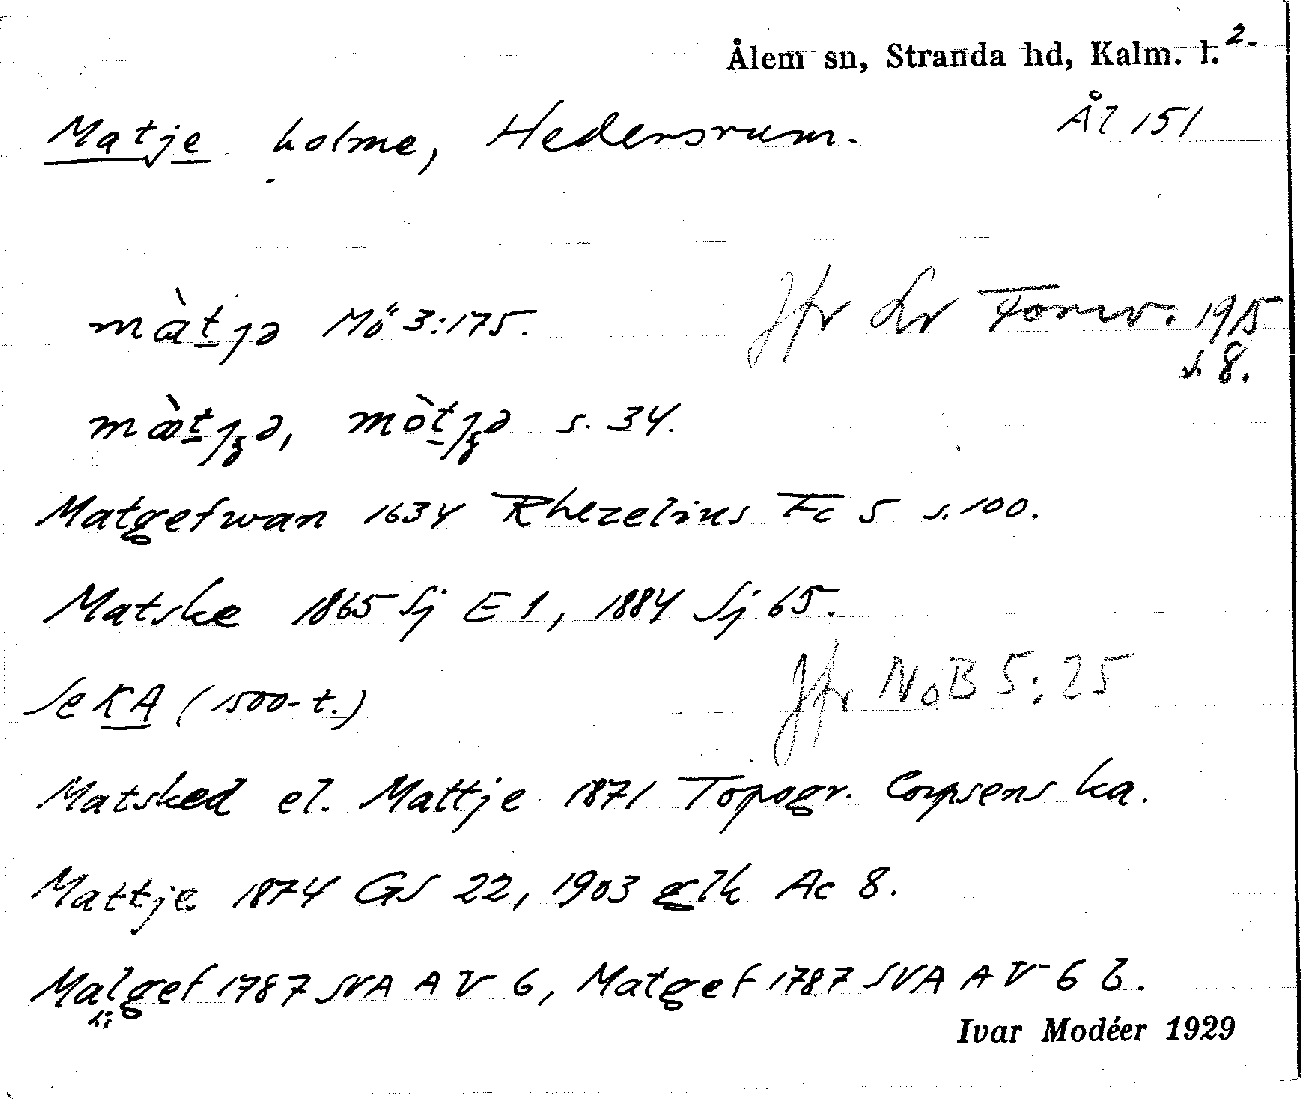 Ålem sn, Stranda hd, Kalm. l. 2.
Matje holme, Hedersrum. Ål 151
màtjə Mö 3:175. Jfr Lr Fornv. 1915
s. 8.
màtjə, mòtjə s. 34.
Matgefwan 1634 Rhezelius Fc 5 s. 100.
Matske 1865 Sj E 1, 1884 Sj 65.
Se KA (1500-t.) Jfr NoB 5:25
Matsked el. Mattje 1871 Topogr. corpsens ka.
Mattje 1874 GS 22, 1903 elk Ac 8.
Malgef 1787 SVA A V 6, Matgef 1787 SVA A V 6 b.
Ivar Modéer 1929